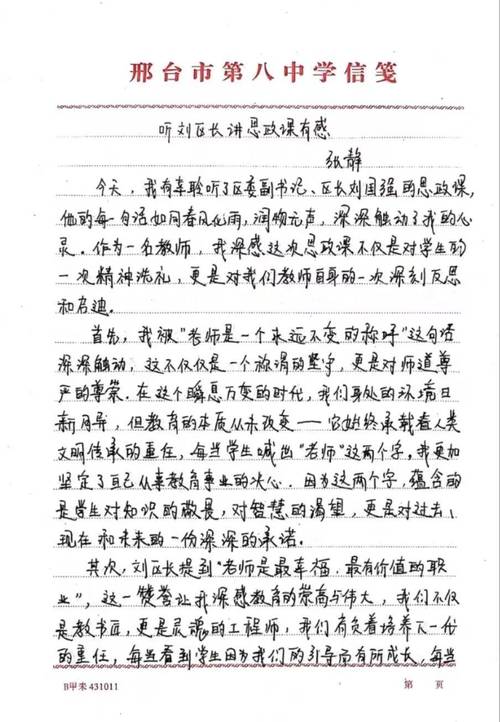 邢台市第八中学信笺
听刘区长讲思政课有感
张静
今天，我有幸聆听了区委副书记、区长刘国强的思政课，
他的每一句话如同春风化雨，润物无声，深深触动了我的心
灵。作为一名教师，我深感这次思政课不仅是对学生的
一次精神洗礼，更是对我们教师自身的一次深刻反思
和启迪。
首先，我被“老师是一个永远不变的称呼”这句话
深深触动，这不仅仅是一个称谓的坚守，更是对师道尊
严的尊崇。在这个瞬息万变的时代，我们身处的环境日
新月异，但教育的本质从未改变——它始终承载着人类
文明传承的重任，每当学生喊出“老师”这两个字，我更加
坚定了自己从事教育事业的决心。因为这两个字，蕴含的
是学生对知识的敬畏，对智慧的渴望，更是对过去、
现在和未来的一份深深的承诺。
其次，刘区长提到“老师是最幸福，最有价值的职
业”，这一赞誉让我深感教育的崇高与伟大，我们不仅
是教书匠，更是灵魂的工程师，我们肩负着培养下一代
的重任，每当看到学生因为我们的引导而有所成长，每当
B甲未 431011
第 页